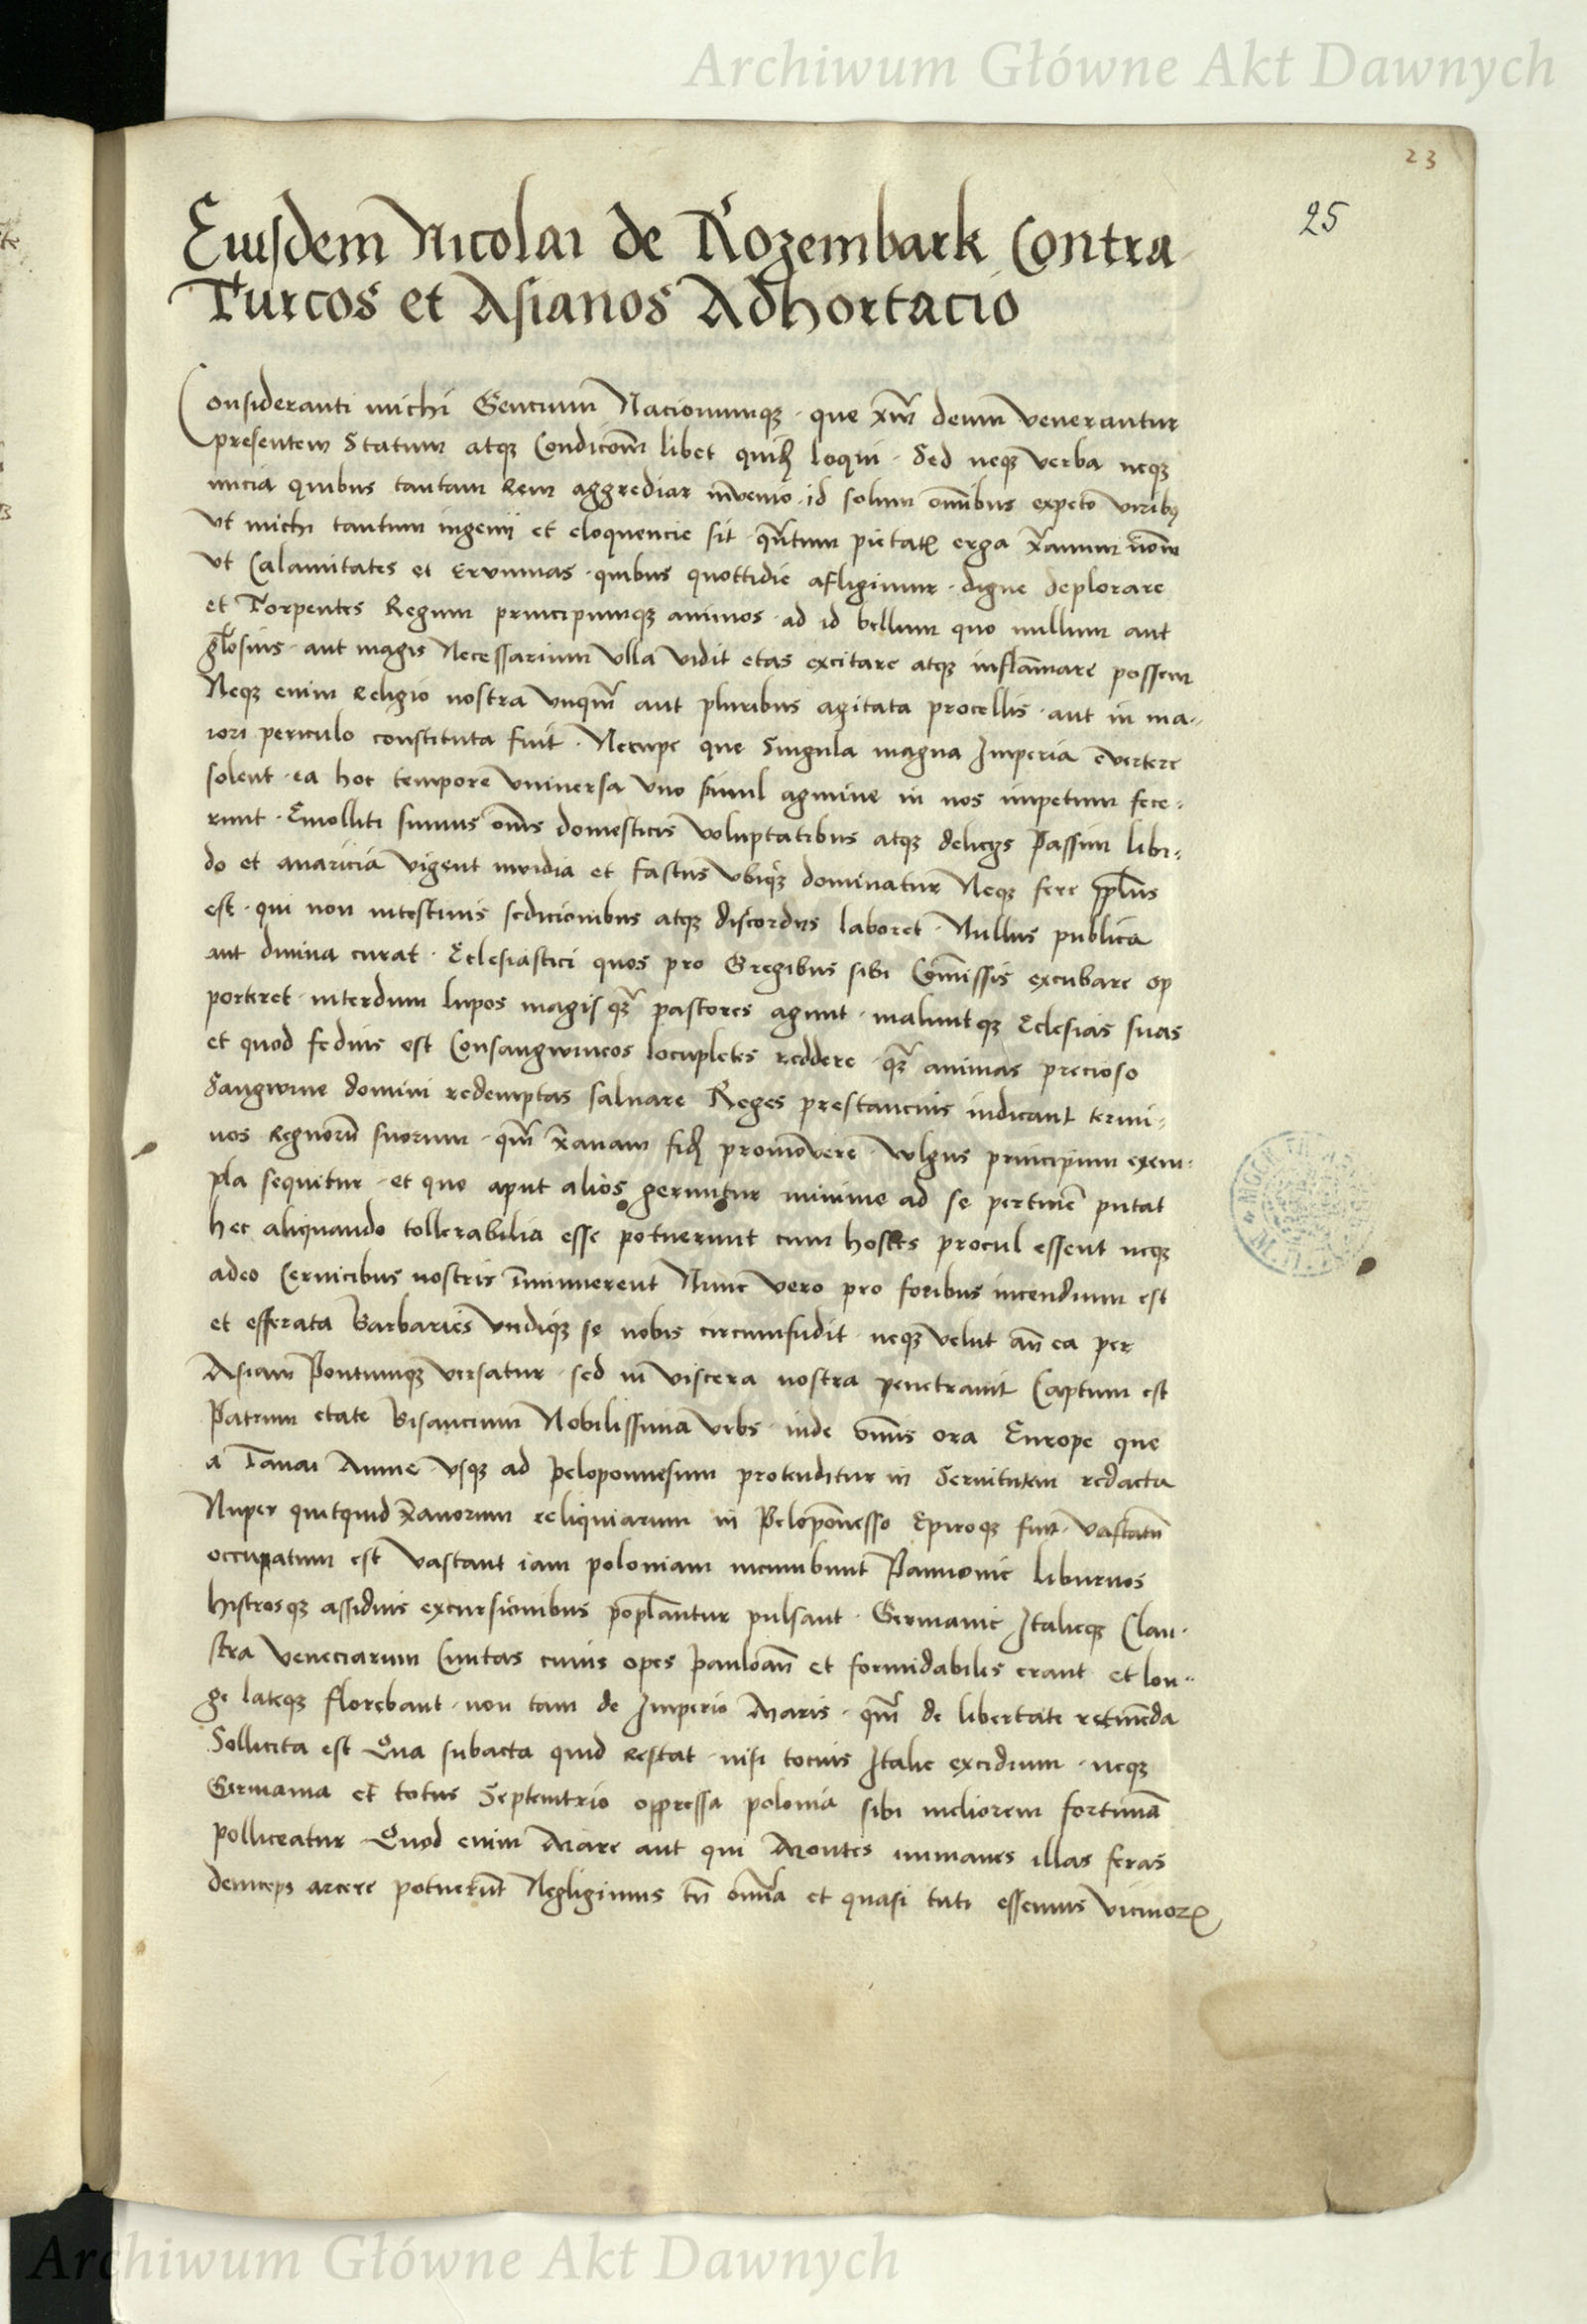 Archiwum Główne Akt Dawnych
23
25
Euisdem Nicolai de Rozembark Contra
Turcos et Asianos Adhortacio
Consideranti michi Gencium Nacionumqꝫ · que xp̄m deum venerantur
presentem Statum atqꝫ Condicōnē libet quiḋ loqui · Sed neqꝫ verba neqꝫ
inicia quibus tantam Rem aggrediar invenio · id solum om̄ibus expeto viribꝫ
Vt michi tantum ingenij et eloquencie sit · qn̄tum pietatꝭ erga xp̄ianum nom̄
Vt Calamitates et Erumnas · quibus quottidie afligimur · digne deplorare
et Torpentes Regum principumqꝫ animos · ad id bellum quo nullum aut
gl̄osius · aut magis Necessarium Vlla vidit etas excitare atqꝫ inflam̄are possem
Neqꝫ enim Religio nostra Vnqm̄ aut pluribus agitata procellis · aut in ma-
iori periculo constituta fuit · Nempe que Singula magna Imperia evertere
solent · ea hoc tempore Vniversa Vno simul agmine in nos impetum fece-
runt · Emolliti sumus om̄s domesticis Voluptatibus atqꝫ delicijs Passim libi-
do et auaricia Vigent inuidia et fastus Vbiqꝫ dominatur Neqꝫ fere ppl̄us
est · qui non intestinis sedicionibus atqꝫ discordijs laboret · Nullus publica
aut diuina curat · Eclesiastici quos pro Gregibus sibi Com̄issis excubare op
porteret · interdum lupos magis qꝫ pastores agunt · maluntqꝫ Eclesias suas
et quod fedius est Consangwineos locupletes reddere · qꝫ animas precioso
Sangwine domini redemptas saluare Reges prestancius iudicant termi-
nos Regnorū suorum · qm̄ xp̄ianam fiḋ promovere · Vulgus principum exem-
pla sequitur · et que aput alios geruntur minime ad se pertinē putat
hec aliquando tollerabilia esse potuerunt cum hostes procul essent neqꝫ
adeo Cervicibus nostris im̄inuerent Nunc Vero pro foribus incendium est
et efferata Barbaries Vndiqꝫ se nobis circumfudit · neqꝫ velut an̄ ea per
Asiam Pontumqꝫ versatur · sed in viscera nostra penetrauit Captum est
Patrum etate Bisancium Nobilissima Vrbs · inde om̄is ora Europe que
a Tanai Amne Vsqꝫ ad Peloponnesum protenditur in Seruitutem redacta
Nuper quitquid xp̄ianorum reliquiarum in Pelopōnesso Epiroqꝫ fuit · Vastatū
occupatum est Vastant iam poloniam incumbunt Pannonie liburnos
histrosqꝫ assiduis excursionibus popl̄antur pulsant · Germanie Italieqꝫ Clau-
stra Veneciarum Ciuitas cuius opes Pauloan̄ et formidabiles erant et lon-
ge lateqꝫ florebant · non tam de Imperio Maris · qm̄ de libertate retinēda
Sollicita est Qua subacta quid Restat · nisi tocius Italie excidium · neqꝫ
Germania et totus Septemtrio oppressa polonia sibi meliorem fortunā
polliceatur Quod enim Mare aut qui Montes inmanes illas feras
deinceps arcere potuerūt Negligimus tn̄ om̄ia et quasi tuti essemus Vicinorꝝ
Archiwum Główne Akt Dawnych